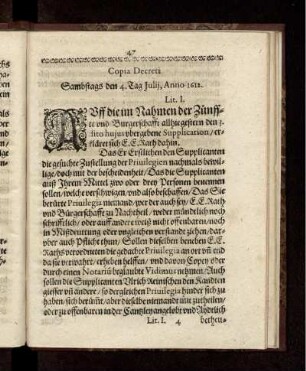 4
Copia Decreti
Sambstags den 4. Tag Julij, Anno 1612.
Lit. I.
AUff die im Nahmen der Zünff-
te und Bürgerschafft allhie gestern den 3.
dito hujus ubergebene Supplication/ er-
kläret sich E. E. Rath dahin.
Das Er Erstlichen den Supplicanten
die gesuchte Zustellung der Privilegien nachmals bewil-
lige/ doch mit der bescheidenheit/ Das die Supplicanten
auß Ihrem Mittel zwo oder drey Personen benennen
sollen/ welche verschwigen und also beschaffen/ Das Sie
berürte Privilegia niemand/ wer der auch sey/ E. E. Rath
und Bürgerschafft zu Nachtheil/ weder mündlich noch
schrifftlich/ oder auff andere weiß nicht offenbaren/ noch
in Mißdeutung oder ungleichen verstandt ziehen/ dar-
uber auch Pflicht thun/ Sollen dieselben beneben E. E.
Raths verordneten die gedachte Privilegia an ort und end
da sie verwahrt/ erheben helffen/ und davon Copey oder
durch einen Notariū beglaubte Vidimus nehmen/ Auch
sollen die Supplicanten Ulrich Reinischen den Kandten
giesser und andere/ so dergleichen Privilegia hinder sich zu
haben/ sich berümt/ aber dieselbe niemandt mit zutheilen/
oder zu offenbaren in der Cantzley angelobt und Aydtlich
Lit. I. 4 betheu-